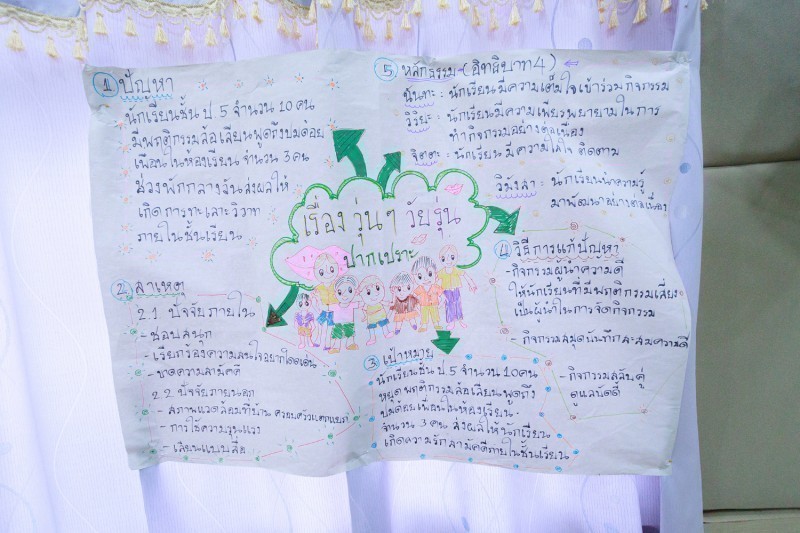 ① ปัญหา
นักเรียนชั้น ป.5 จำนวน 10 คน
มีพฤติกรรมล้อเลียนพูดถึงปมด้อย
เพื่อนในห้องเรียน จำนวน 3 คน
ช่วงพักกลางวันส่งผลให้
เกิดการทะเลาะวิวาท
ภายในชั้นเรียน
2 สาเหตุ
2.1 ปัจจัยภายใน
- ชอบสนุก
- เรียกร้องความสนใจอยากโดดเด่น
- ขาดความสามัคคี
2.2 ปัจจัยภายนอก
- สภาพแวดล้อมที่บ้าน ครอบครัวแตกแยก
- การใช้ความรุนแรง
- เลียนแบบสื่อ
เรื่อง วุ่นๆ วัยรุ่น
ปากเปราะ
③ เป้าหมาย
นักเรียนชั้น ป.5 จำนวน 10 คน
หยุดพฤติกรรมล้อเลียนพูดถึง
ปมด้อยเพื่อนในห้องเรียน
จำนวน 3 คน ส่งผลให้นักเรียน
เกิดความรักสามัคคีภายในชั้นเรียน
④ วิธีการแก้ปัญหา
- กิจกรรมผู้นำความดี
ให้นักเรียนที่มีพฤติกรรมเสี่ยง
เป็นผู้นำในการจัดกิจกรรม
- กิจกรรมสมุดบันทึกสะสมความดี
- กิจกรรมสลับคู่
ดูแลบัดดี้
⑤ หลักธรรม (อิทธิบาท 4)
ฉันทะ : นักเรียนมีความเต็มใจเข้าร่วมกิจกรรม
วิริยะ : นักเรียนมีความเพียรพยายามในการ
ทำกิจกรรมอย่างต่อเนื่อง
จิตตะ : นักเรียนมีความใส่ใจ ติดตาม
วิมังสา : นักเรียนนำความรู้
มาพัฒนาอย่างต่อเนื่อง